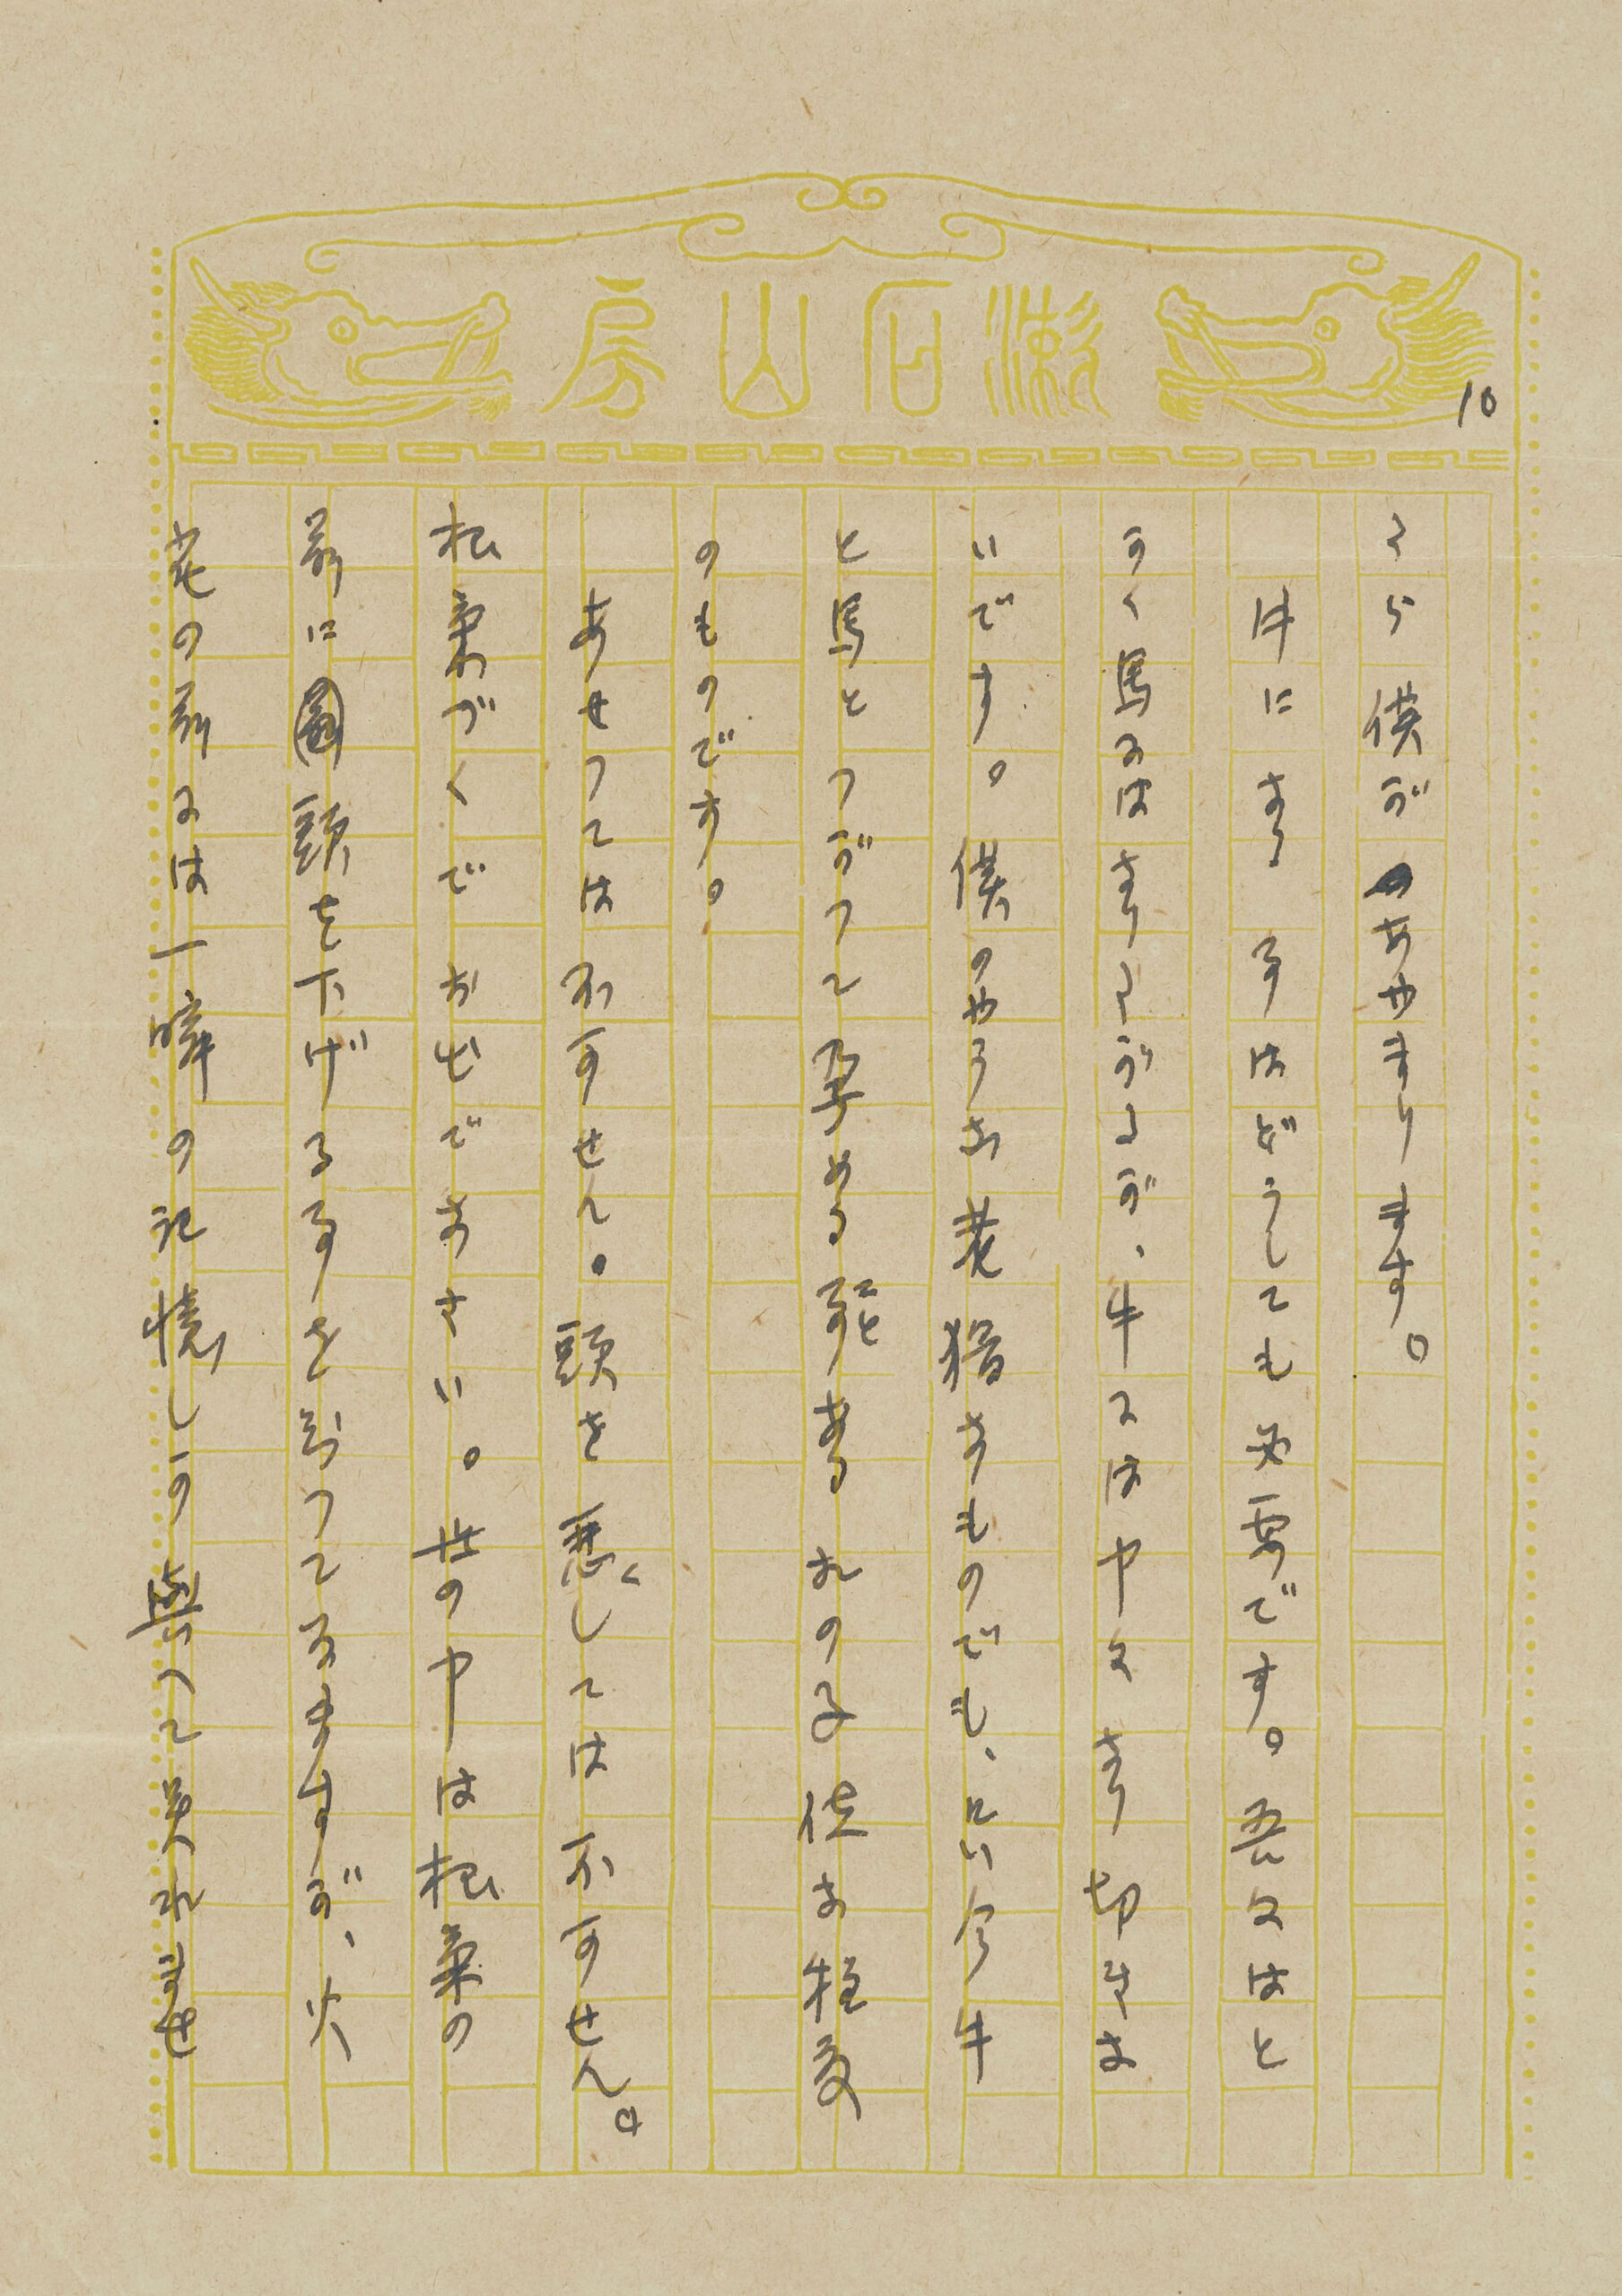 漱石山房
10
ら僕があやまります。
牛になる事はどうしても必要です。吾々はと
かく馬になりたがるが、牛には中々なり切れな
いです。僕のやうな老猾なものでも、只今牛
と馬とつがつて孕める事ある相の子位な程度
のものです。
あせつては不可せん。頭を悪くしては不可せん。
根気づくでお出でなさい。世の中は根気の
前に頭を下げる事を知つてゐますが、火
花の前には一瞬の記憶しか與へて呉れません